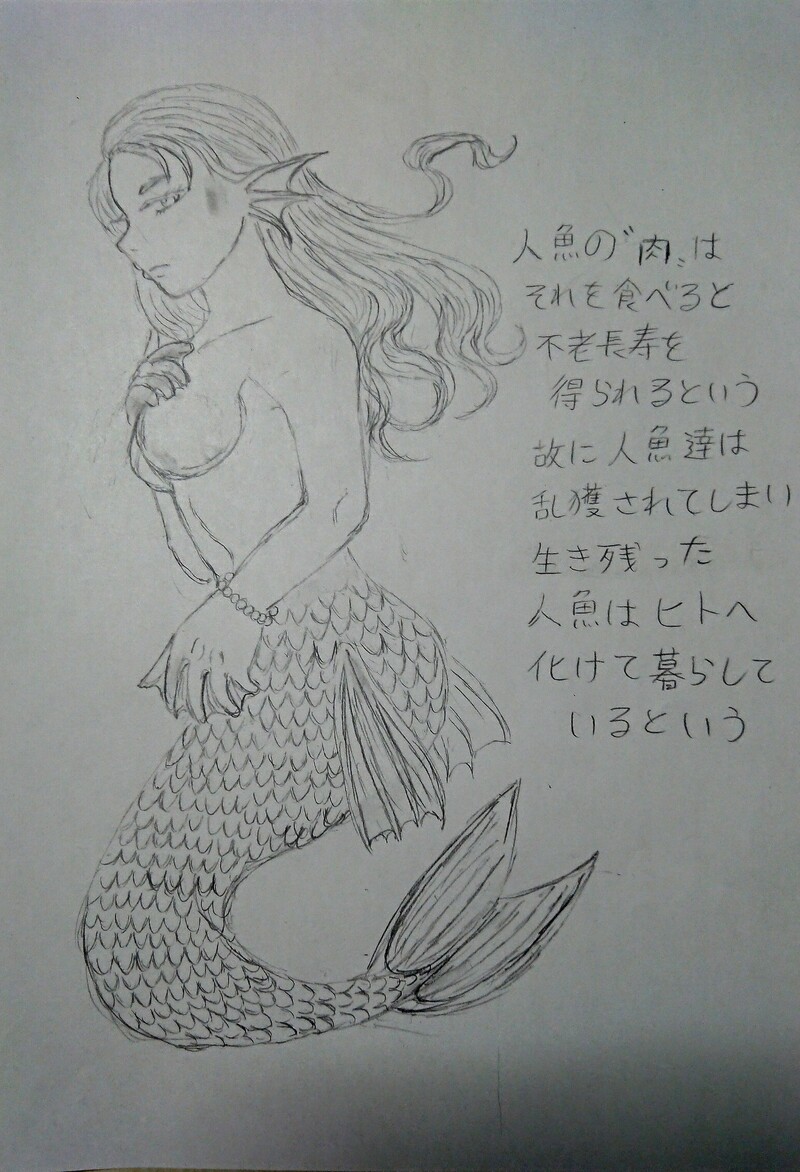 人魚の〝肉〟は
それを食べると
不老長寿を
得られるという
故に人魚達は
乱獲されてしまい
生き残った
人魚はヒトへ
化けて暮らして
いるという